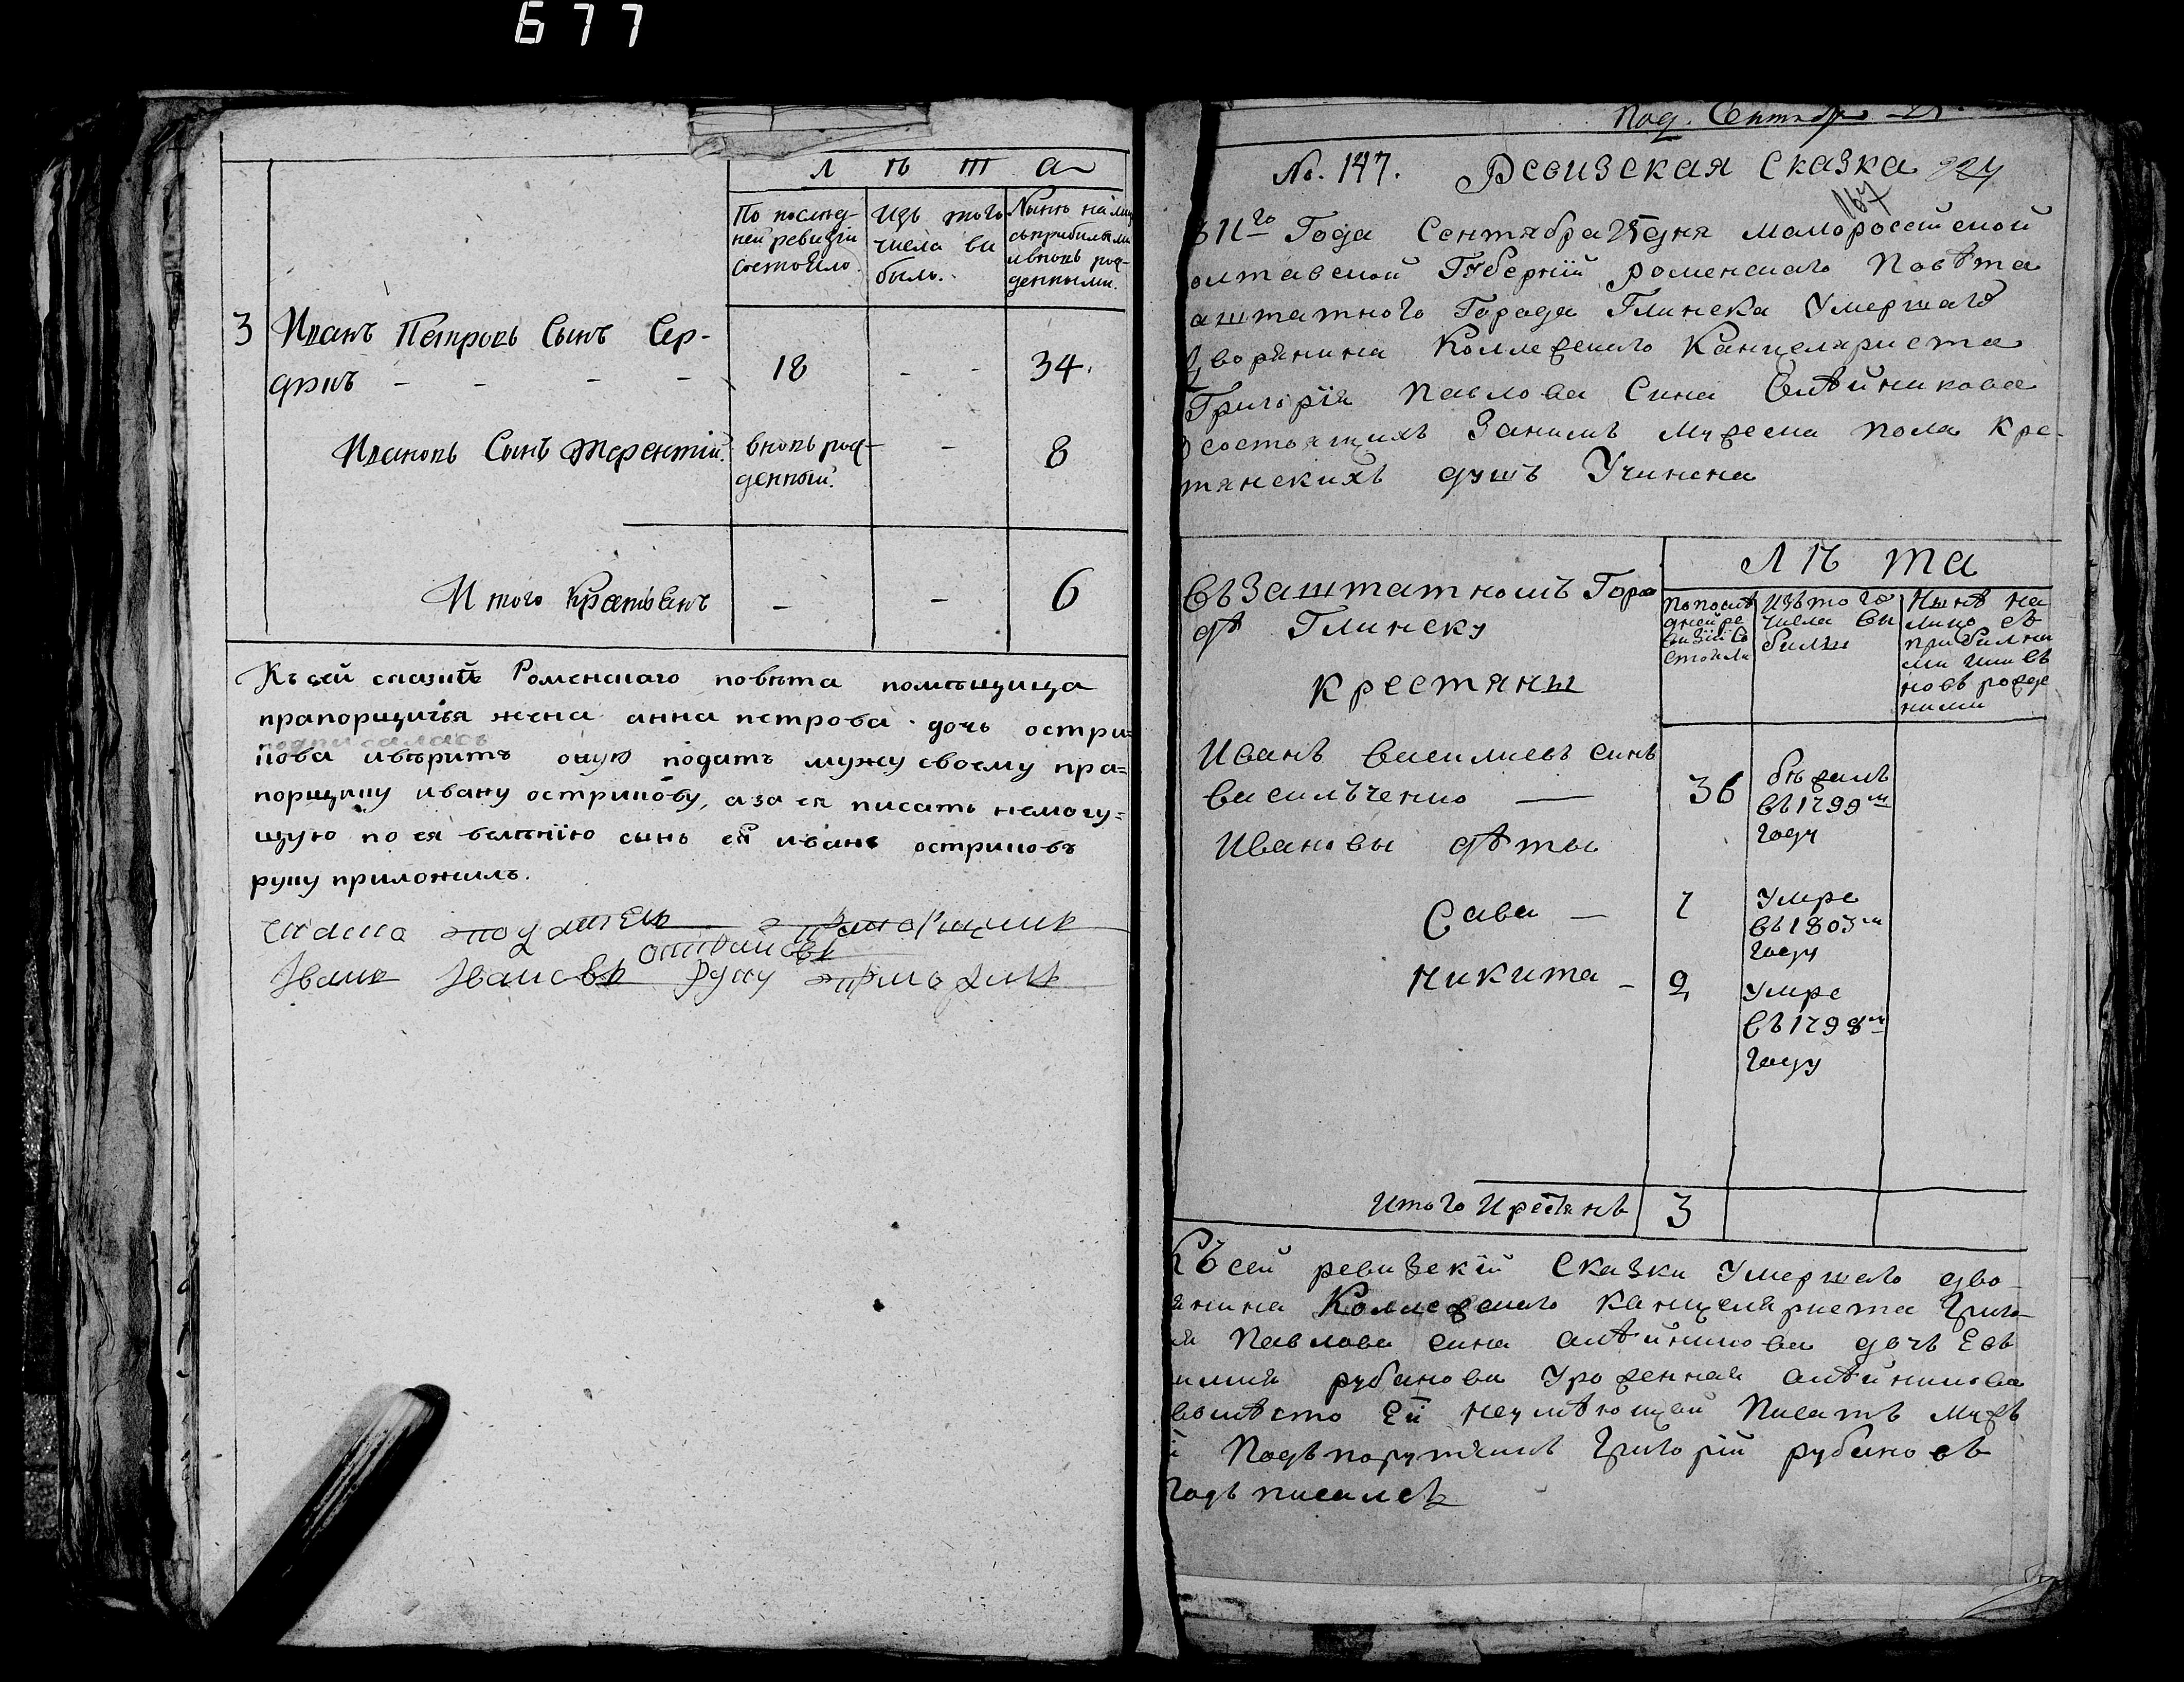 677
Л ѣ т а
По послед-
ней ревизіи
состояло.
Изъ того
числа вы
было.
Нынѣ на лиц
съприбылыми
ивновь рож-
денными.
3 Иванъ Петровъ Сынъ Сер-
дюкъ - - - - 18 - - 34.
Ивановъ Сынъ Терентій. вновь рож-
денной. - 8
Итого Крестьянъ - - 6
Къ сей сказкѣ Роменскаго повѣта помѣщица
прапорщичья жена анна петрова дочь остри=
подписалась
кова ивѣритъ оную подать мужу своему пра=
порщику ивану острикову, а за ея писать немогу=
щую по ея велѣнію сынъ ей иванъ остриковъ
руку приложилъ.
Иванъ Ивановъ руку приложилъ
Под. Сентяб
№. 147. Ревизская Сказка 224
167
811го Года Сентября 25 дня малоросейской
олтавской Губерніи роменскаго Повѣта
аштатного Города Глинска Умершаго
дворянина Коллежскаго Канцеляриста
Григорія Павлова Сина Олѣйникова
о состоящихъ Занимъ мужеска пола кре-
тянскихъ душъ Учинена
Въ Заштатномъ Горо
дѣ Глинску
крестяны
Лѣ та
Попослѣ
дней ре
визіи со
стояли
Изъ того
числа ви
били
Нынѣ на
лицо съ
прибилы
ми и въ
новь рожде
ними
Иванъ василиевъ синъ
василъченко — 36 бѣжалъ
въ 1799м
году
Ивановы дѣты
Сава — 7 Умре
въ 1803м
году
Никита - 2 Умре
въ 1798м
году
Итого крестянъ 3
Къ сей ревизскій Сказки Умершаго дво-
янина Коллежскаго канцеляриста Григо-
ія Павлова сина олѣйникова дочь Евѣ
имия рубанова Уроженная олѣйникова
вомѣсто Ей неумѣющей Писать мужъ
й Подъпорутчикъ Григорій рубановъ
подъписалсѣ